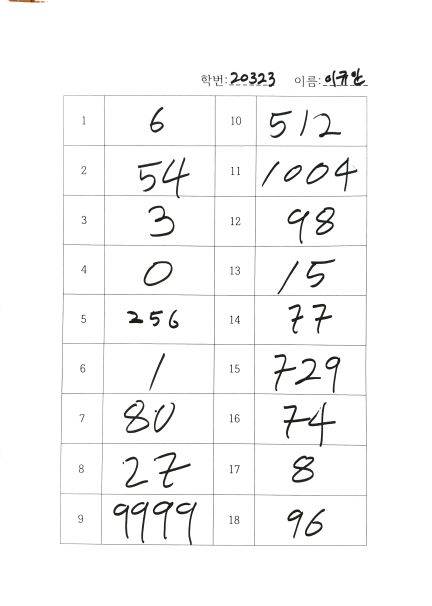 학번: 20323 이름: 이규안
1 6 10 512
2 54 11 1004
3 3 12 98
4 0 13 15
5 256 14 77
6 1 15 729
7 80 16 74
8 27 17 8
9 9999 18 96